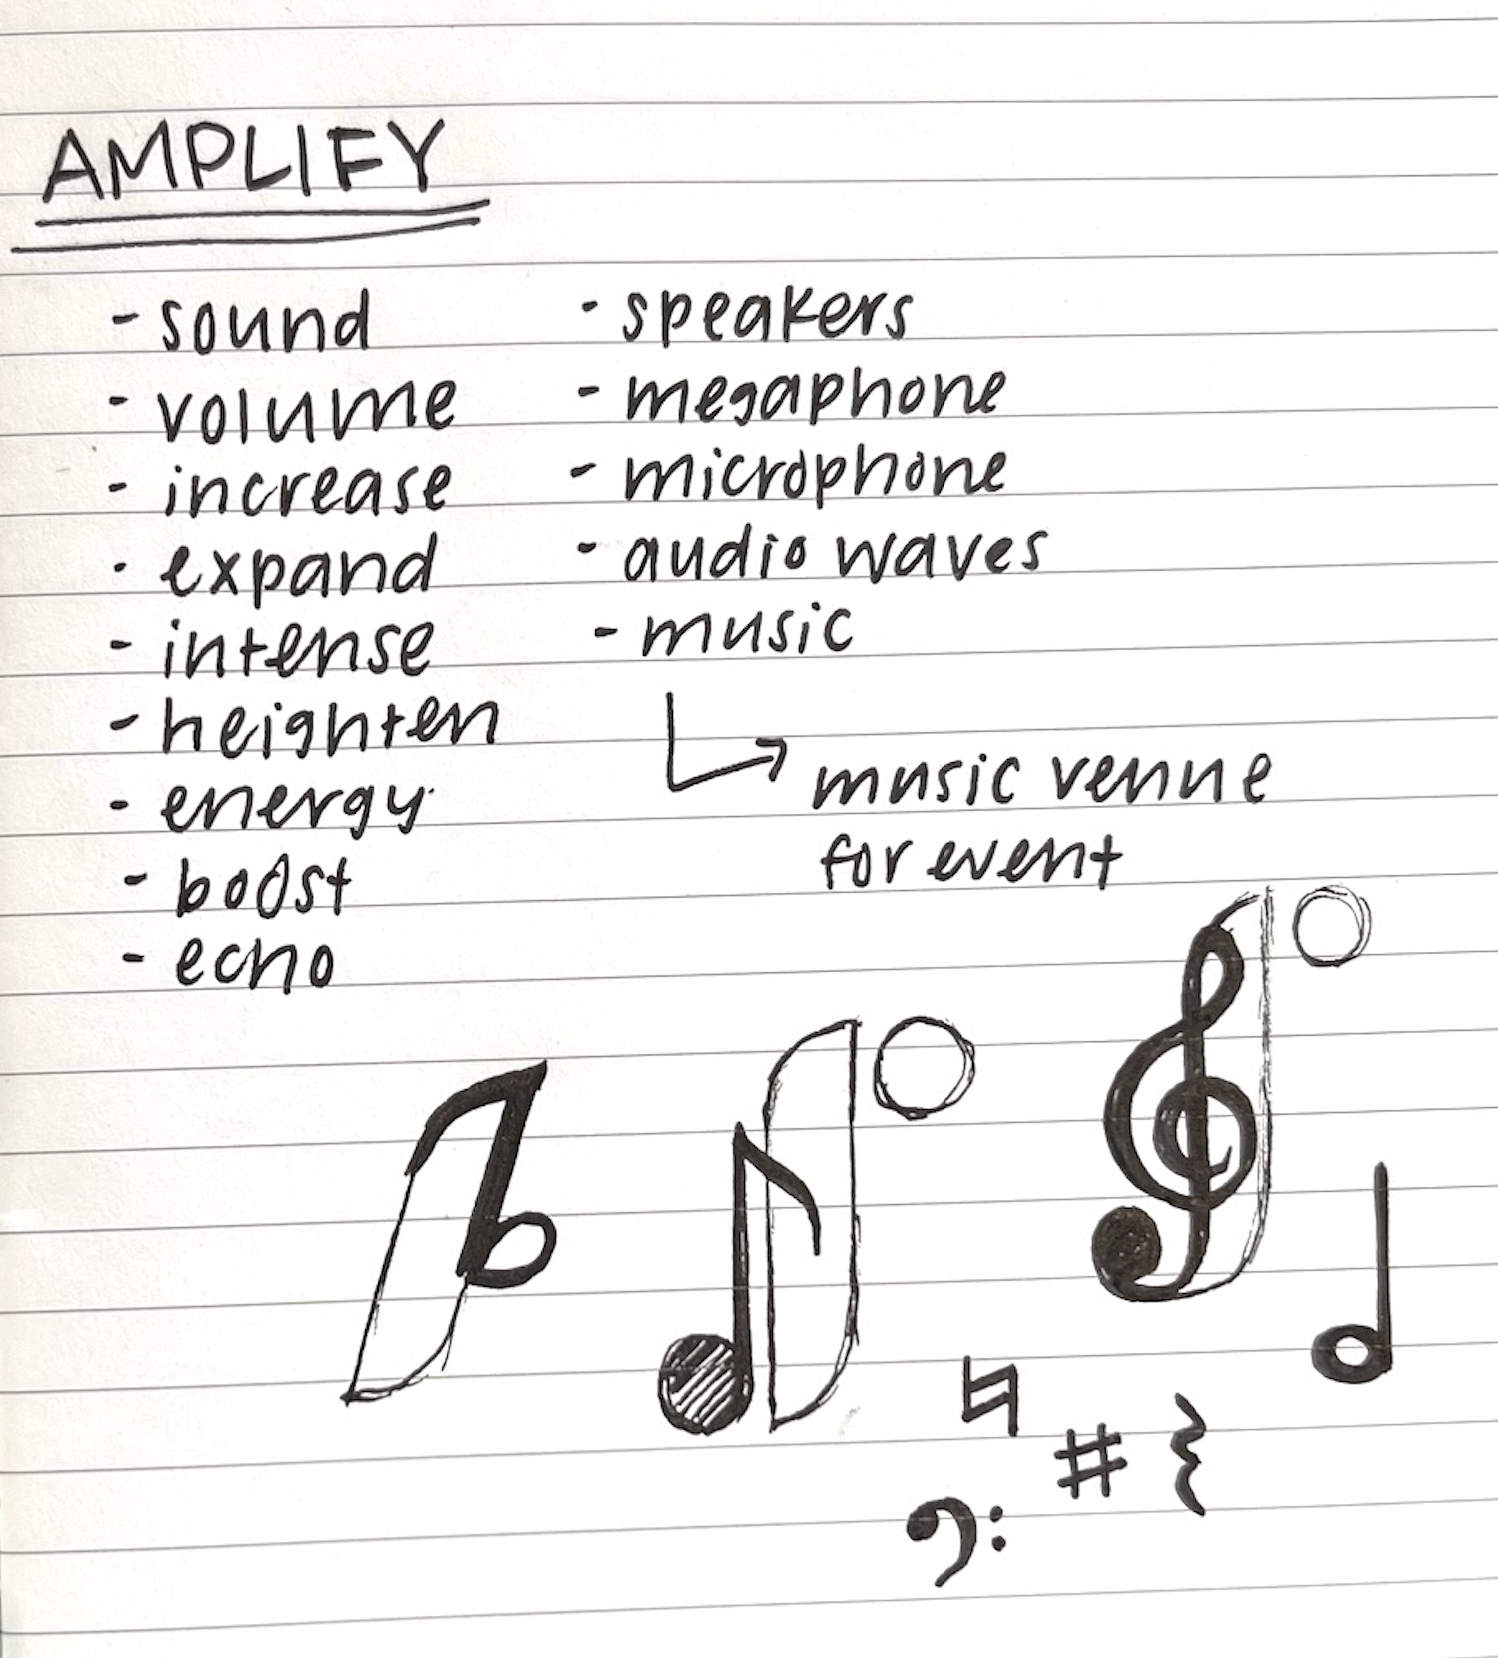 AMPLIFY
- sound
- volume
- increase
- expand
- intense
- heighten
- energy
- boost
- echo
- speakers
- megaphone
- microphone
- audio waves
- music
music venue
for event